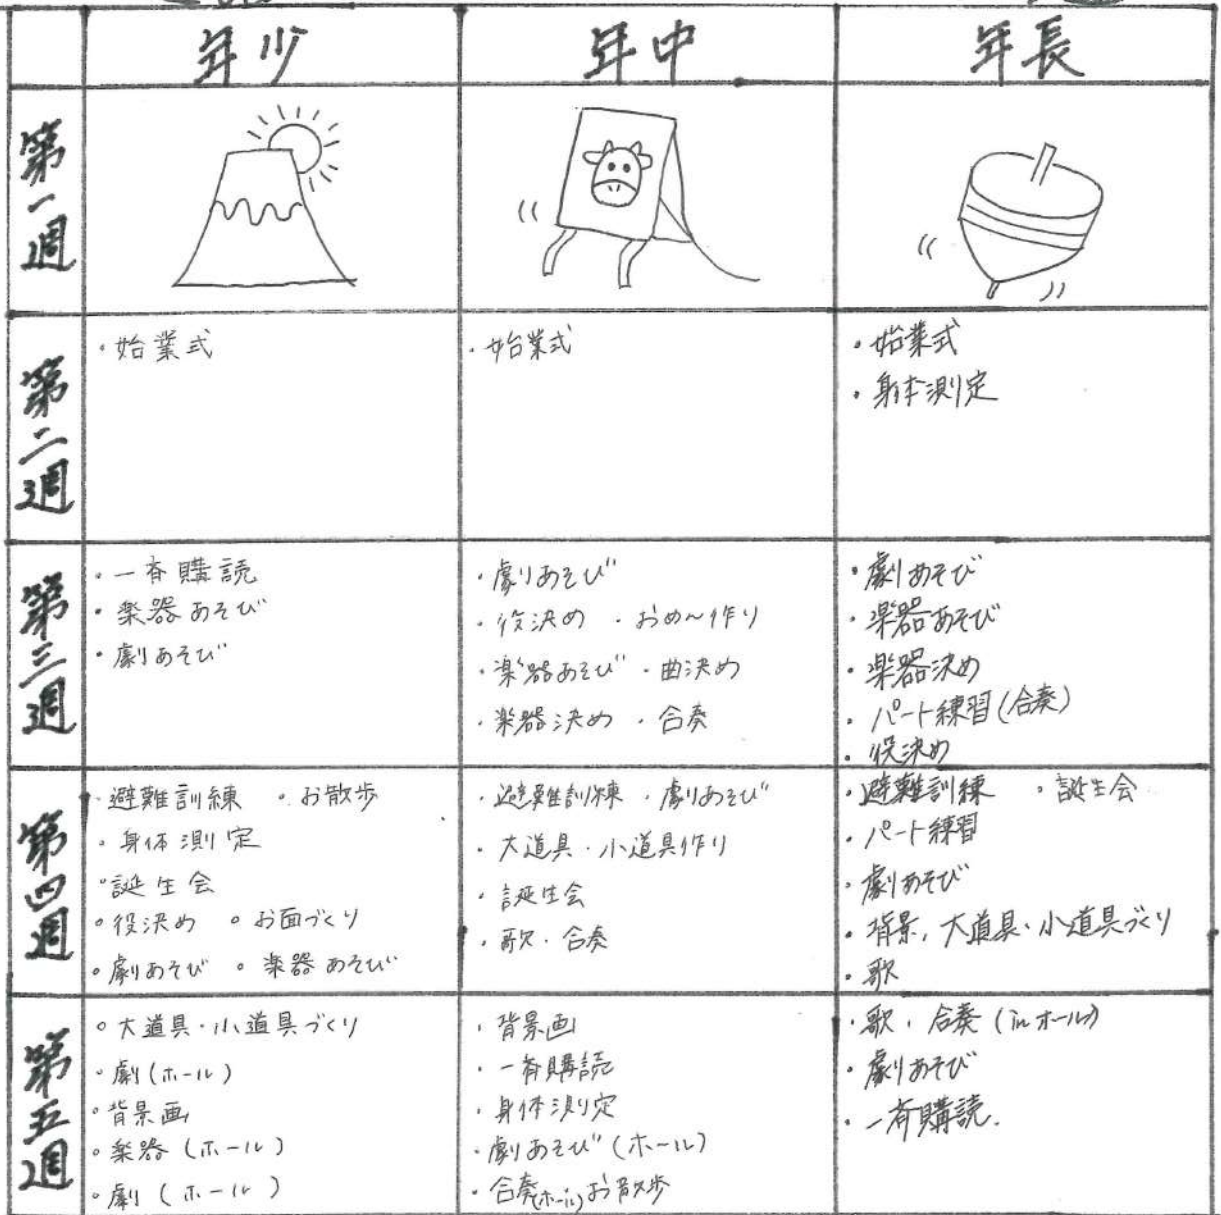 年少 年中 年長
第一週
第二週
・始業式
・始業式
・始業式
・身体測定
第三週
・一斉購読
・楽器あそび
・劇あそび
・劇あそび
・役決め ・おめん作り
・楽器あそび ・曲決め
・楽器決め ・合奏
・劇あそび
・楽器あそび
・楽器決め
・パート練習(合奏)
・役決め
第四週
・避難訓練 ・お散歩
・身体測定
・誕生会
・役決め ・お面づくり
・劇あそび ・楽器あそび
・避難訓練 ・劇あそび
・大道具・小道具作り
・誕生会
・歌・合奏
・避難訓練 ・誕生会
・パート練習
・劇あそび
・背景, 大道具・小道具づくり
・歌
第五週
・大道具・小道具づくり
・劇(ホール)
・背景画
・楽器(ホール)
・劇(ホール)
・背景画
・一斉購読
・身体測定
・劇あそび(ホール)
・合奏(ホール)お散歩
・歌・合奏(inホール)
・劇あそび
・一斉購読.